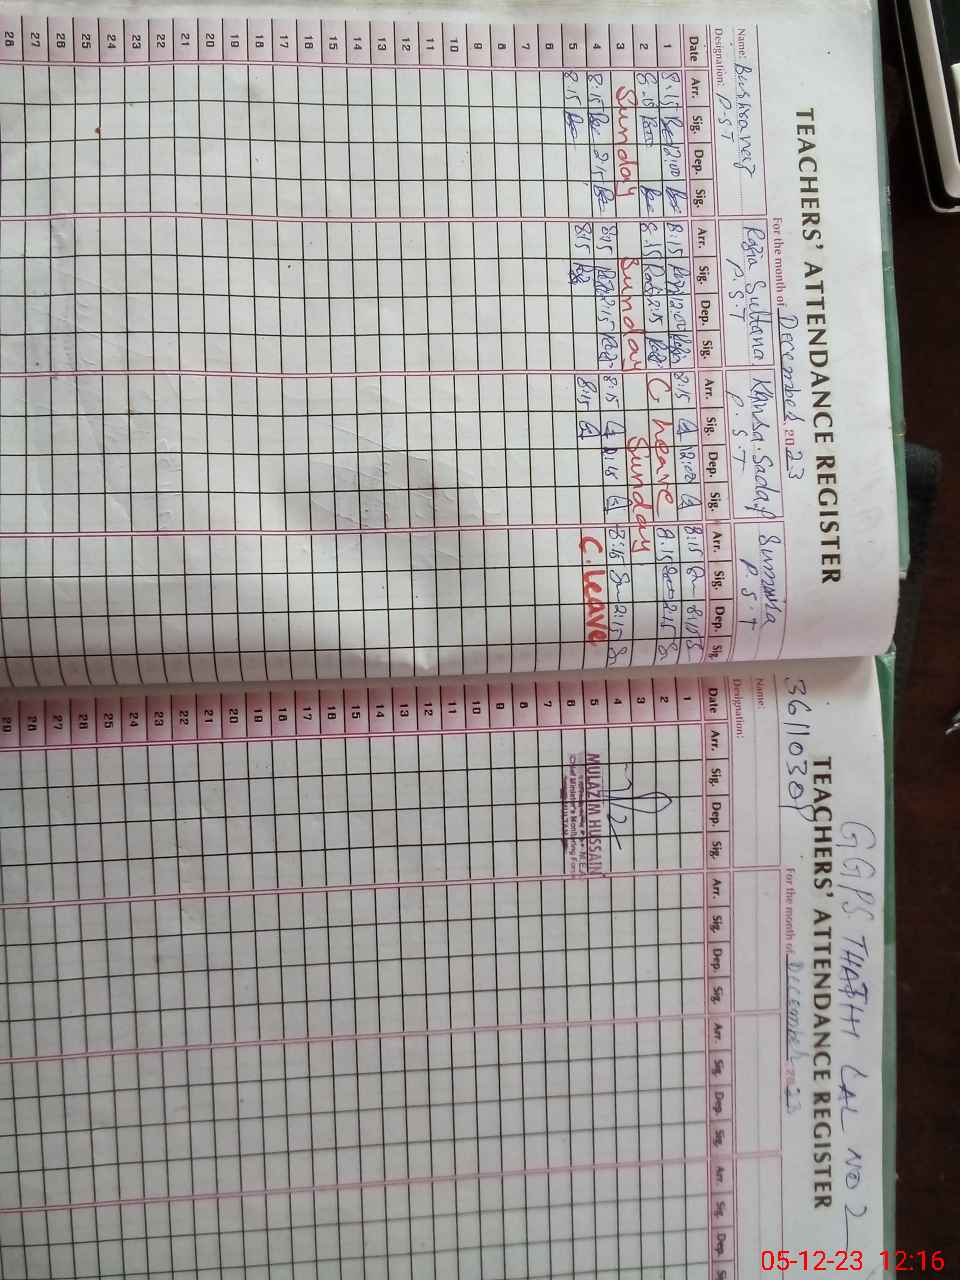 TEACHERS' ATTENDANCE REGISTER
For the month of December 2023
Name: Bushra naz Razia Sultana Khansa Sadaf Sumaira
Designation: P.S.T P.S.T P.S.T P.S.T
Date Arr. Sig. Dep. Sig. Arr. Sig. Dep. Sig. Arr. Sig. Dep. Sig. Arr. Sig. Dep. Sig
1 8:15 12:00 8:15 12:00 8:15 12:00 8:15
2 8:15 8:15 2:15 C. leave 8:15 2:15
3 Sunday Sunday Sunday
4 8:15 2:15 8:15 2:15 8:15 2:15 8:15 2:15
5 8:15 8:15 8:15 C. Leave
6
7
8
9
10
11
12
13
14
15
16
17
18
19
20
21
22
23
24
25
26
27
28
GGPS THATHI LAL NO 2
36110309
TEACHERS' ATTENDANCE REGISTER
For the month of December 2023
Name:
Designation:
Date Arr. Sig. Dep. Sig. Arr. Sig. Dep. Sig. Arr. Sig. Dep. Sig. Arr. Sig. Dep.
1
2
3
4
5 MULAZIM HUSSAIN
6 Chief Minister's Monitoring Force
7
8
9
10
11
12
13
14
15
16
17
18
19
20
21
22
23
24
25
26
27
28
29
05-12-23 12:16